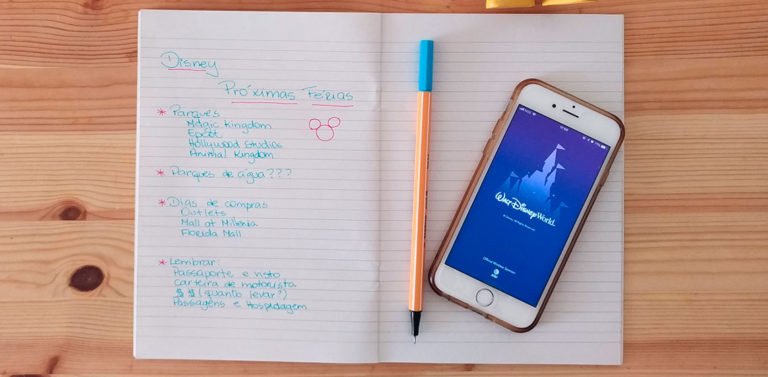 Disney
Próximas Férias
* Parques
Magic Kingdom
Epcot
Hollywood Studios
Animal Kingdom
* Parques de água???
* Dias de compras
Outlets
Mall at Millenia
Florida Mall
* Lembrar:
Passaporte e visto
carteira de motorista
$ $ (quanto levar?)
Passagens e Hospedagem
Walt Disney World